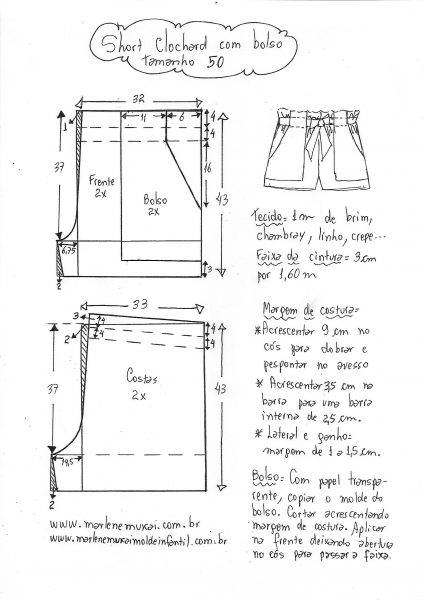 Short Clochard com bolso
tamanho 50
32
11
6
4
4
1
37
16
43
Frente
2x
Bolso
2x
6,75
3
2
33
3
4
4
2
4
4
Costas
2x
37
43
14,5
2
www.marlenemukai.com.br
www.marlenemukaimoldeinfantil.com.br
Tecido= 1m de brim,
chambray, linho, crepe...
Faixa da cintura= 3cm
por 1,60m
Margem de costura=
* Acrescentar 9 cm no
cós para dobrar e
pespontar no avesso
* Acrescentar 3,5 cm na
barra para uma barra
interna de 2,5cm.
* Lateral e ganho=
margem de 1 a 1,5cm.
Bolso= Com papel transpa-
rente, copiar o molde do
bolso. Cortar acrescentando
margem de costura. Aplicar
na frente deixando abertura
no cós para passar a faixa.